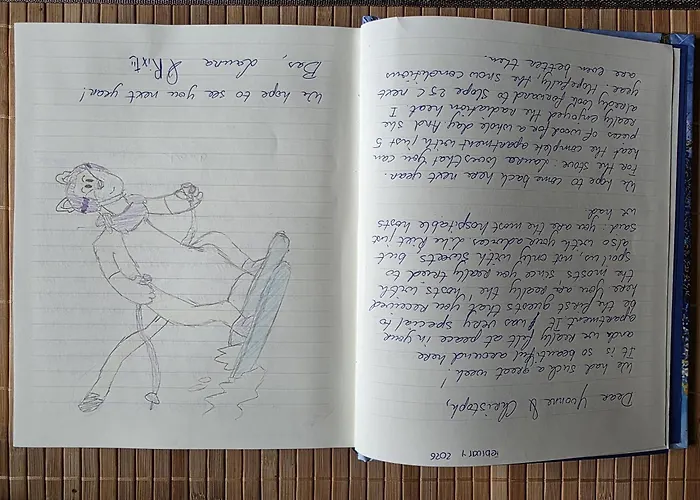 2026
Dear Yvonne & Christoph,
We had such a great week!
It is so beautiful around here
and we really felt at peace in your
apartment. It was very special to
be the first guests that you received
here. You are really the hosts with
the mosts since you really tried to
spoil us, not only with sweets, but
also with your adorces like Riet just
said: you are the most hospitable hosts
we had.
We hope to come back here next year.
For the stove: Laura loves that you can
heat the complete apartment with just 5
pieces of wood for a whole day. And she
really enjoyed the radiation heat. I
already look forward to slope 25C next
year. Hopefully, the snow conditions
are even better then.
We hope to see you next year!
Bas, Laura & Rixt